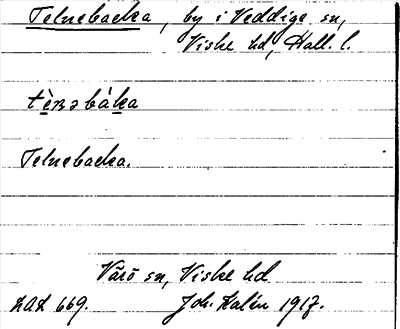 Telnebacka, by i Veddige sn,
Viske hd, Hall. l.
Telnebacka.
Värö sn, Viske hd
LAL 669. Joh. Kalén 1917.